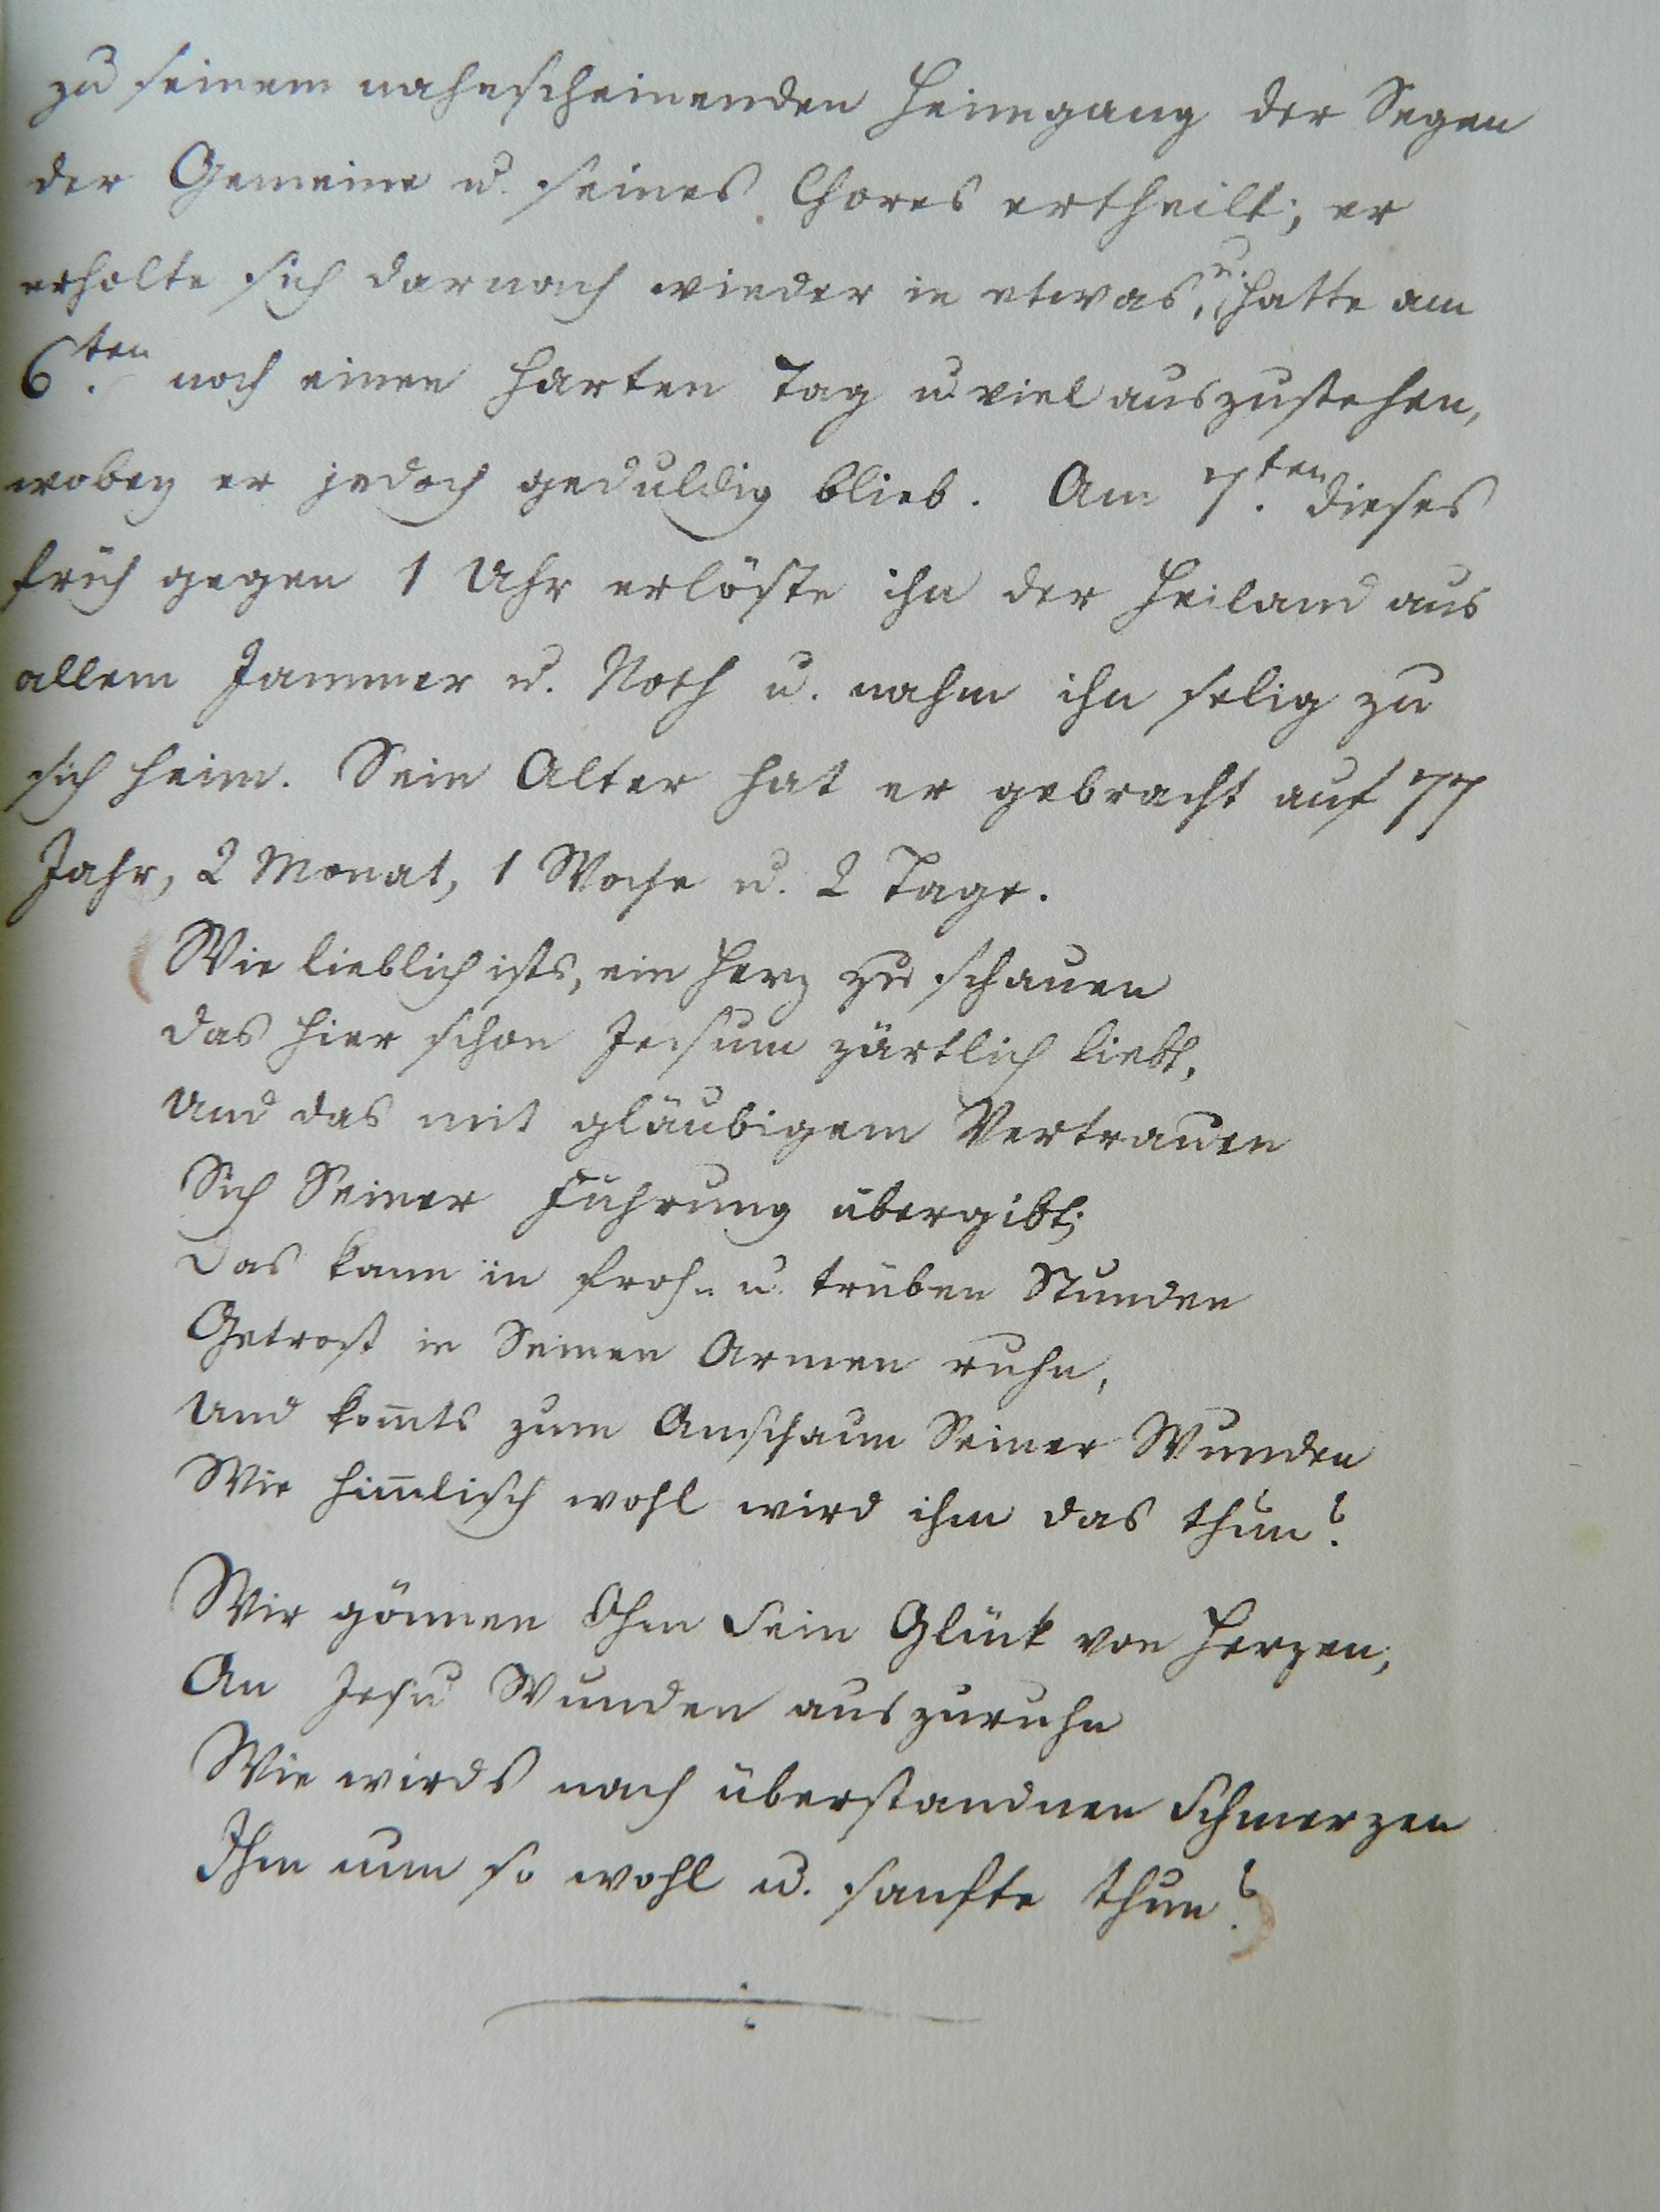 zu seinem nahescheinenden Heimgang der Segen
der Gemeine u. seines Chores ertheilt; er
erholte sich darnach wieder in etwas, u. hatte am
6.ten noch einen harten Tag u. viel auszustehen,
wobey er jedoch geduldig blieb. Am 7.ten dieses
früh gegen 1 Uhr erlöste ihn der Heiland aus
allem Jammer u. Noth u. nahm ihn selig zu
sich heim. Sein Alter hat er gebracht auf 77
Jahr, 2 Monat, 1 Woche u. 2 Tage.
Wie lieblich ists, ein Herz zu schauen
das hier schon Jesum zärtlich liebt,
und das mit gläubigem Vertrauen
Sich Seiner Führung übergibt;
Das kann in froh- u. trüben Stunden
Getrost in Seinen Armen ruhn,
und kom̄ts zum Anschaun Seiner Wunden
Wie him̄lisch wohl wird ihm das thun?
Wir gönnen Ihm sein Glück von Herzen,
An Jesu Wunden auszuruhn
Wie wirds nach überstandnen Schmerzen
Ihm nun so wohl u. sanfte thun?